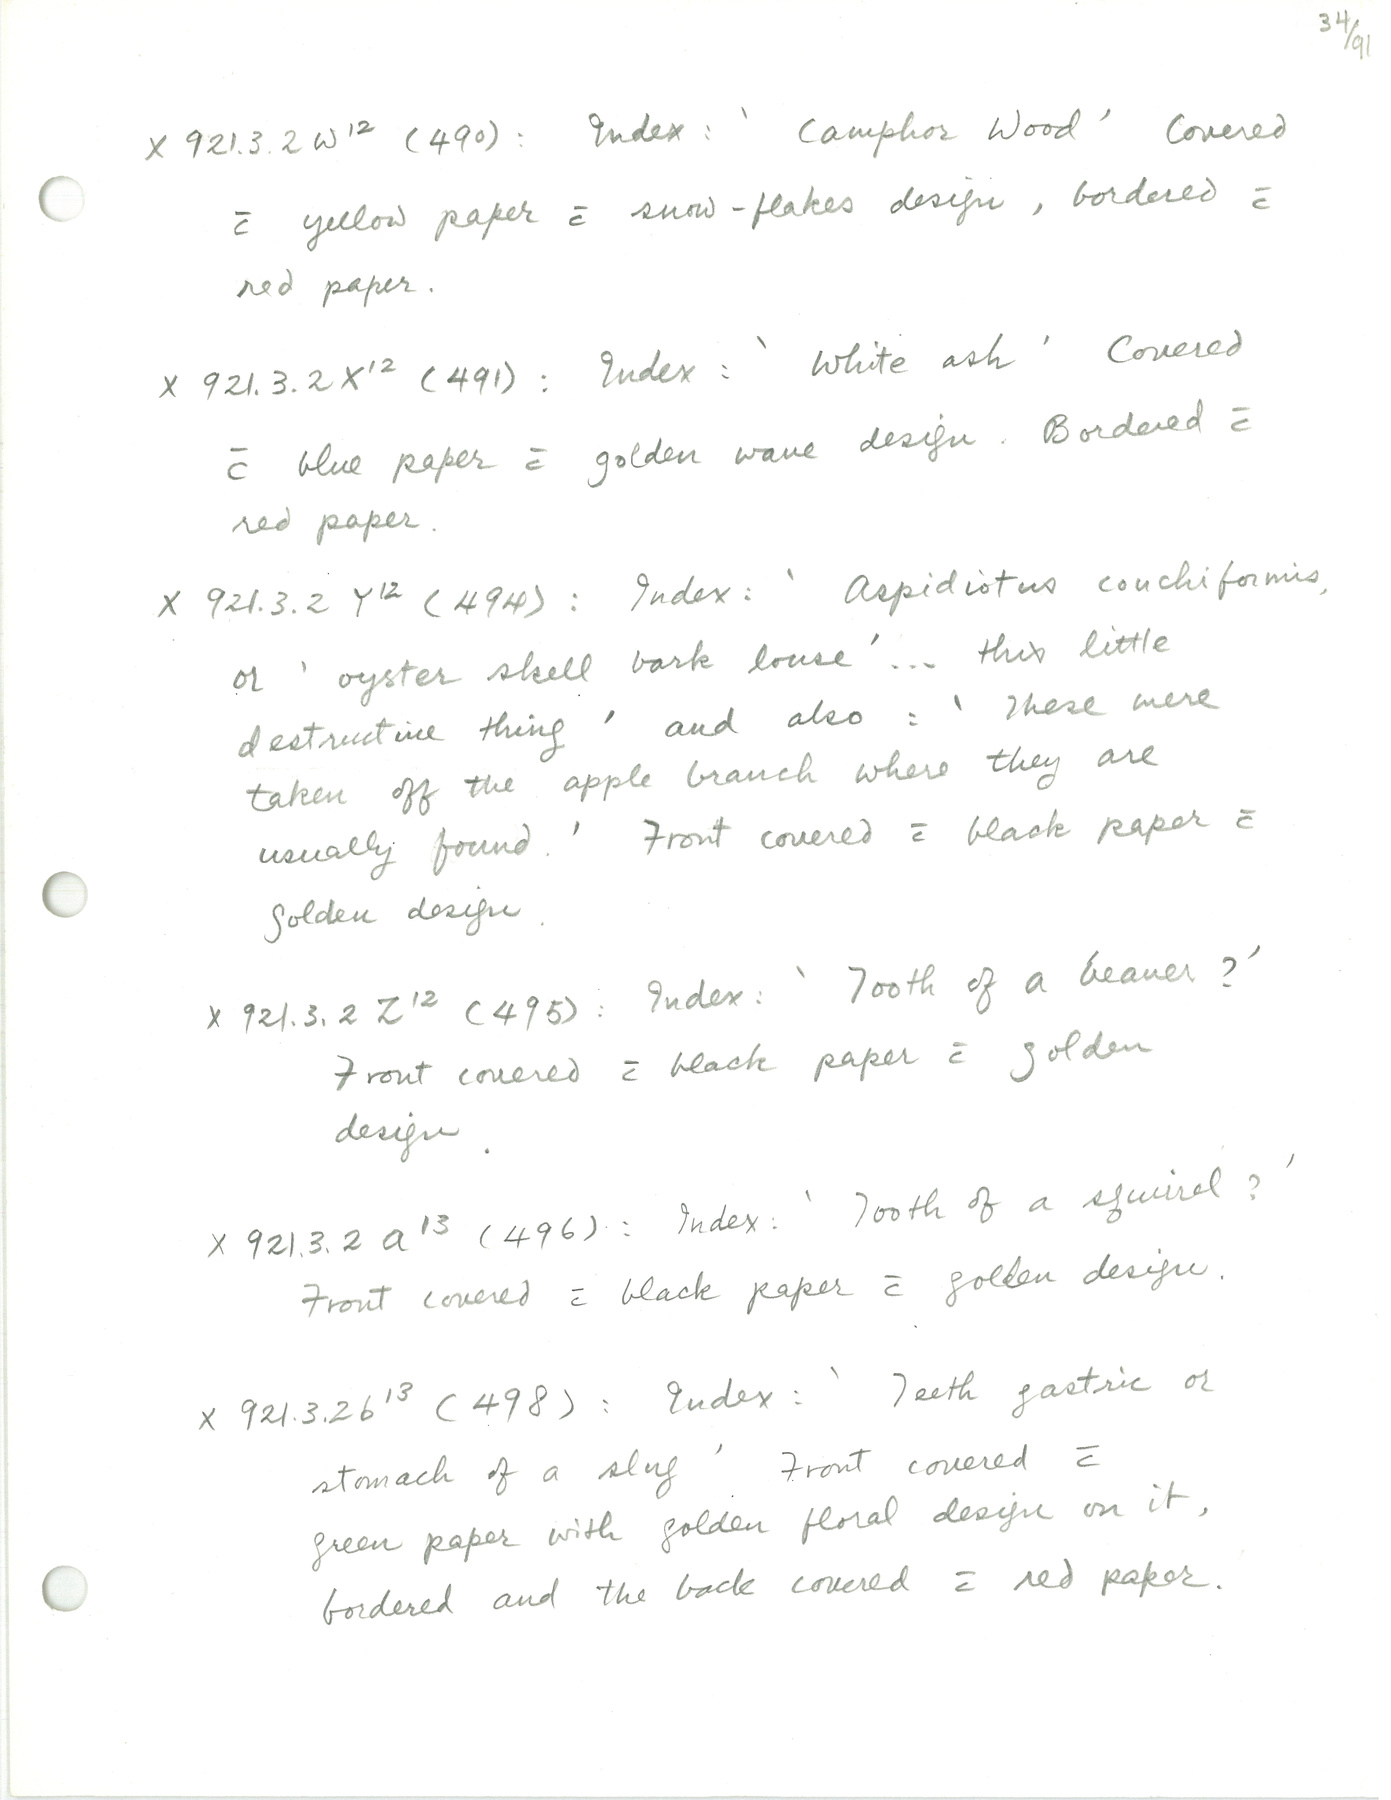 34/91
X 921.3.2 W¹² (490): Index: ‘ Camphor Wood’ Covered
c̄ yellow paper c̄ snow-flakes design, bordered c̄
red paper.
X 921.3.2 X¹² (491): Index: ‘ White ash ’ Covered
c̄ blue paper c̄ golden wave design. Bordered c̄
red paper.
X 921.3.2 Y¹² (494): Index: ‘ Aspidiotus conchiformis,
or ‘ oyster shell bark louse’... this little
destructive thing ’ and also : ‘ These were
taken off the apple branch where they are
usually found.’ Front covered c̄ black paper c̄
golden design.
X 921.3.2 Z¹² (495): Index: ‘ Tooth of a beaver ?’
Front covered c̄ black paper c̄ golden
design.
X 921.3.2 a¹³ (496): Index: ‘ Tooth of a squirel ?’
Front covered c̄ black paper c̄ golden design.
X 921.3.2 b¹³ (498): Index: ‘ Teeth gastric or
stomach of a slug ’ Front covered c̄
green paper with golden floral design on it,
bordered and the back covered c̄ red paper.